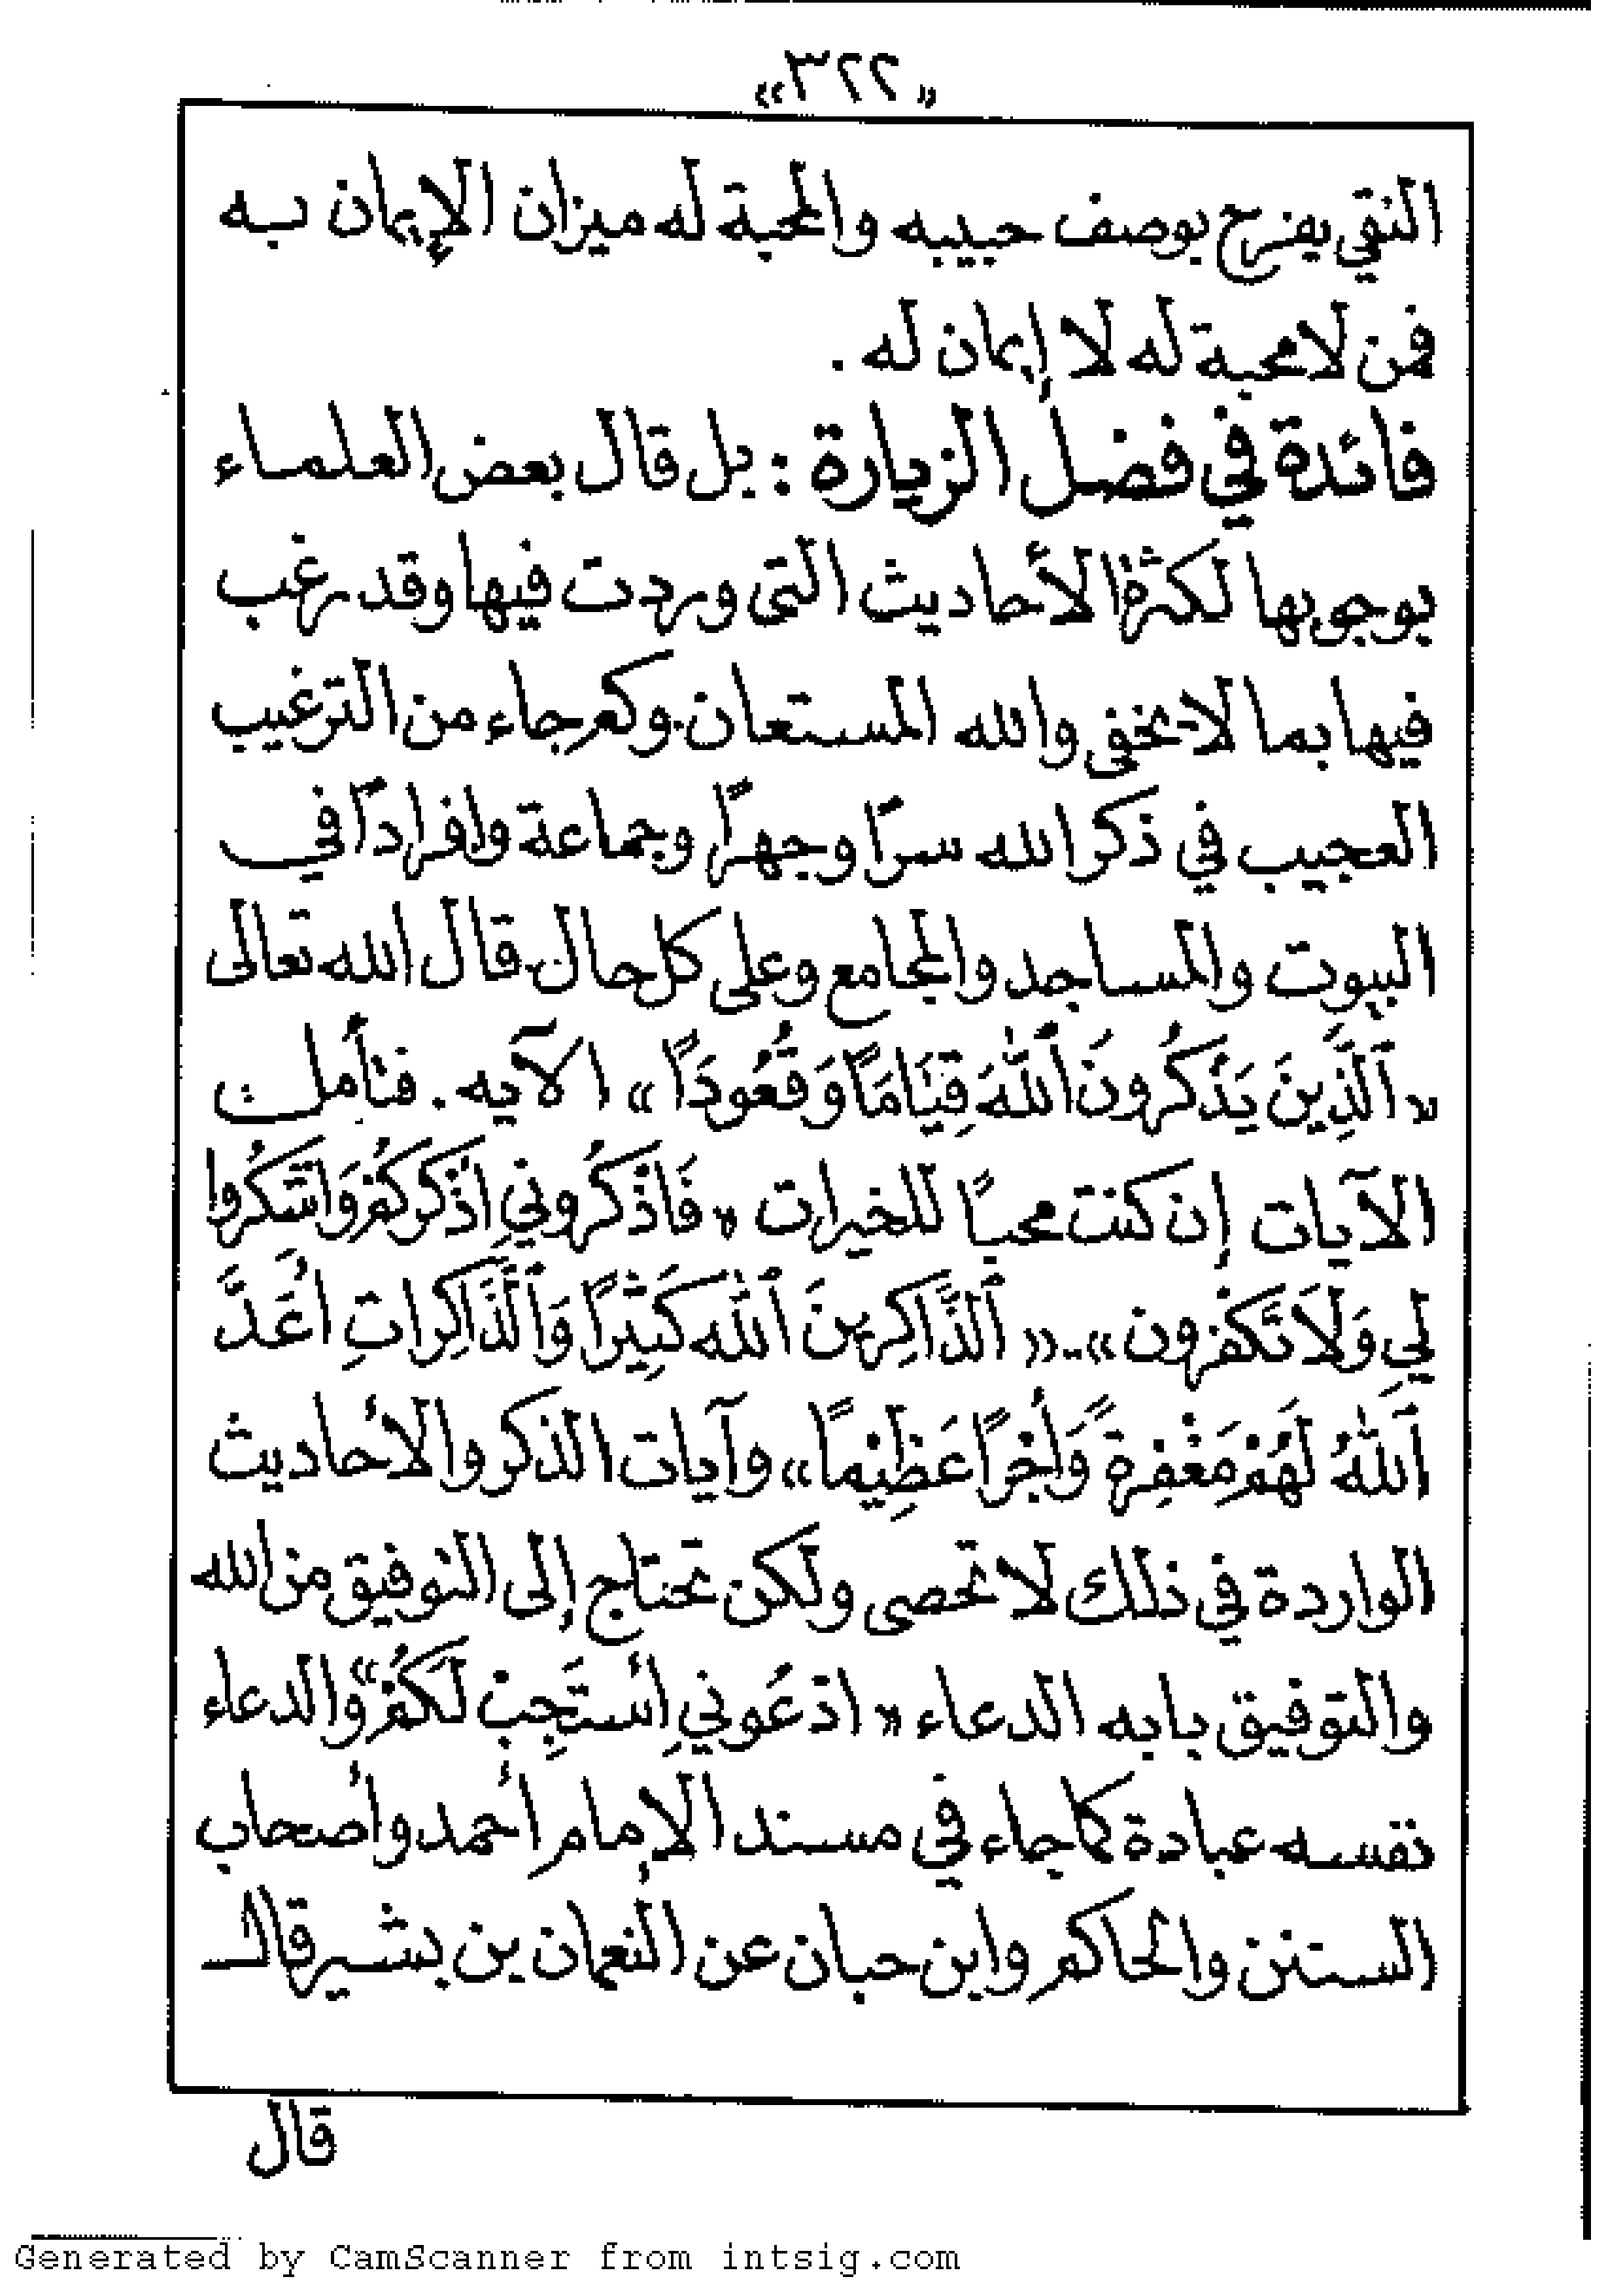 «٣٢٢»
التقي يفرح بوصف حبيبه والمحبة له ميزان الإيمان به
فمن لا محبة له لا إيمان له .
فائدة في فضل الزيارة : بل قال بعض العلماء
بوجوبها لكثرة الأحاديث التي وردت فيها وقد رغب
فيها بما لا يخفى والله المستعان . وكم جاء من الترغيب
العجيب في ذكر الله سرًا وجهرًا وجماعة وافرادًا في
البيوت والمساجد والمجامع وعلى كل حال . قال الله تعالى
« ٱلَّذِينَ يَذْكُرُونَ ٱللهَ قِيَامًا وَقُعُودًا » الآيه . فتأمل
الآيات إن كنت محبًا للخيرات « فَاذْكُرُونِي اذْكُرْكُمْ وَاشْكُرُوا
لِي وَلَا تَكْفُرون » .. « ٱلذَّاكِرِينَ ٱللهَ كَثِيرًا وَٱلذَّاكِرَاتِ اعَدَّ
ٱللهُ لَهُمْ مَغْفِرَةً وَأَجْرًا عَظِيْمًا » وآيات الذكر والأحاديث
الواردة في ذلك لا تحصى ولكن تحتاج إلى التوفيق من الله
والتوفيق بابه الدعاء « ادْعُونِي أَسْتَجِبْ لَكُمْ » والدعاء
نفسه عبادة كما جاء في مسند الإمام أحمد وأصحاب
السنن والحاكم وابن حبان عن النعمان بن بشير قال
قال
Generated by CamScanner from intsig.com